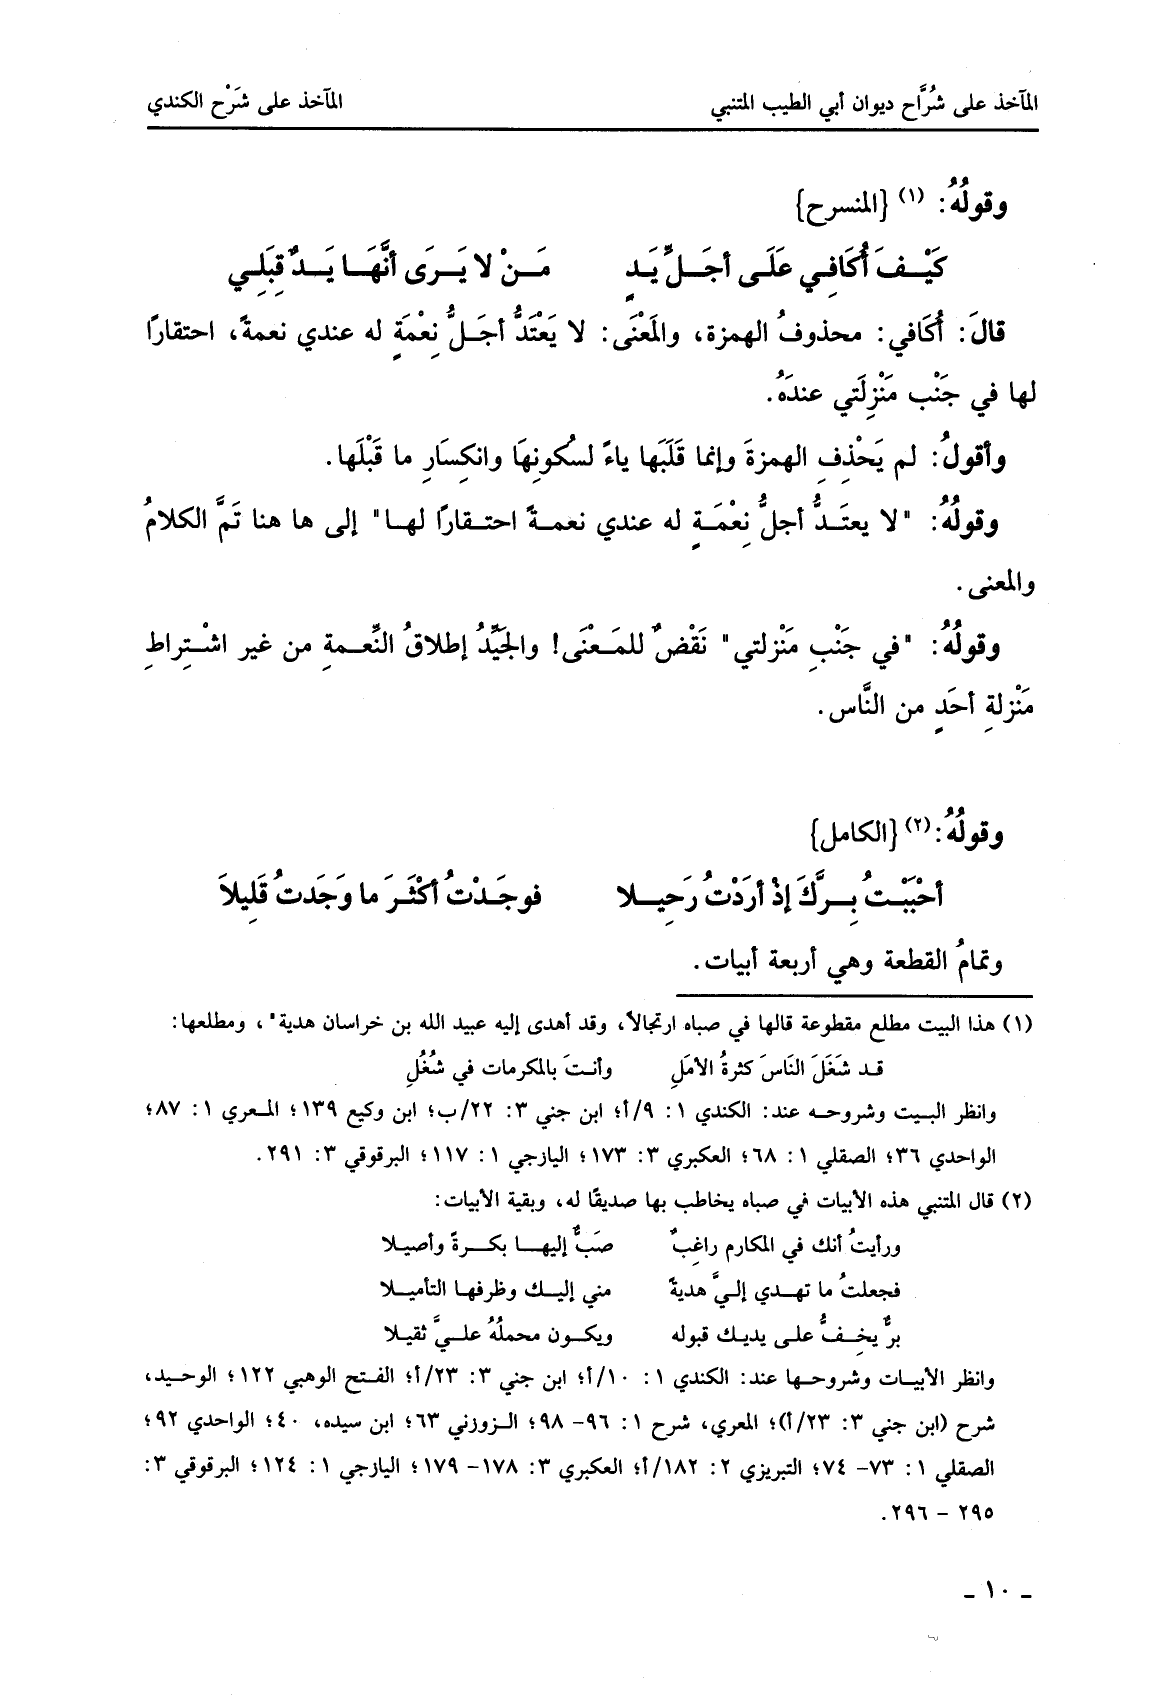 المآخذ على شُرَّاح ديوان أبي الطيب المتنبي المآخذ على شَرْح الكندي
وقولُهُ: (١) {المنسرح}
كَيْـفَ أُكَافِي عَلَى أجَـلِّ يَـدٍ مَـنْ لا يَـرَى أنَّهَـا يَـدٌ قِبَلِي
قالَ: أُكَافي: محذوفُ الهمزة، والمَعْنَى: لا يَعْتَدُّ أجَلَّ نِعْمَةٍ له عندي نعمةً، احتقارًا
لها في جَنْب مَنْزِلَتي عندَهُ.
وأقولُ: لم يَحْذِفِ الهمزةَ وإنما قَلَبَها ياءً لسكونِهَا وانكِسَارِ ما قَبْلَها.
وقولُهُ: "لا يعتَـدُّ أجلُّ نِعْمَـةٍ له عندي نعمـةً احتـقارًا لهـا" إلى ها هنا تَمَّ الكلامُ
والمعنى.
وقولُهُ: "في جَنْبِ مَنْزِلتي" نَقْضٌ للمَـعْنَى! والجَيِّدُ إطلاقُ النِّعـمةِ من غير اشْـتِراطِ
مَنْزلةِ أحَدٍ من النَّاس.
وقولُهُ:(٢) {الكامل}
أحْبَبْـتُ بِـرَّكَ إذْ أرَدْتُ رَحِيـلا فوجَـدْتُ أكْثَـرَ ما وَجَدتُ قَلِيلاَ
وتمامُ القطعة وهي أربعة أبيات.
(١) هذا البيت مطلع مقطوعة قالها في صباه ارتجالاً، وقد أهدى إليه عبيد الله بن خراسان هدية"، ومطلعها:
قـد شغَلَ الناسَ كثرةُ الأمَلِ وأنـتَ بالمكرمات في شُغُلِ
وانظر البـيت وشروحـه عند: الكندي ١: ٩/أ؛ ابن جني ٣: ٢٢/ب؛ ابن وكيع ١٣٩؛ المـعري ١: ٨٧؛
الواحدي ٣٦؛ الصقلي ١: ٦٨؛ العكبري ٣: ١٧٣؛ اليازجي ١: ١١٧؛ البرقوقي ٣: ٢٩١.
(٢) قال المتنبي هذه الأبيات في صباه يخاطب بها صديقًا له، وبقية الأبيات:
ورأيتُ أنك في المكارم راغِبٌ صَبٌّ إليهـا بكـرةً وأصيـلا
فجعلتُ ما تهـدي إلـيَّ هديةً مني إليـك وظرفهـا التأميـلا
برٌّ يخِـفُّ على يديـك قبوله ويكـون محملُهُ علـيَّ ثقيـلا
وانظر الأبيـات وشروحـها عند: الكندي ١: ١٠/أ؛ ابن جني ٣: ٢٣/أ؛ الفـتح الوهبي ١٢٢؛ الوحـيد،
شرح (ابن جني ٣: ٢٣/أ)؛ المعري، شرح ١: ٩٦- ٩٨؛ الـزوزني ٦٣؛ ابن سيده، ٤٠؛ الواحدي ٩٢؛
الصقلي ١: ٧٣- ٧٤؛ التبريزي ٢: ١٨٢/أ؛ العكبري ٣: ١٧٨- ١٧٩؛ اليازجي ١: ١٢٤؛ البرقوقي ٣:
٢٩٥ - ٢٩٦.
- ١٠ -